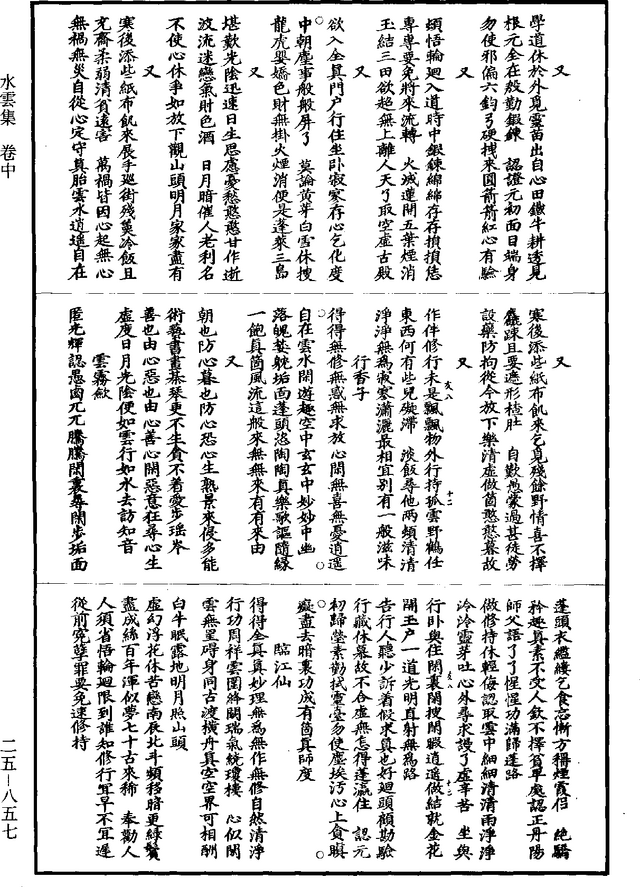 水雲集　卷中
二五－八五七
又
學道休於外覓靈苗出自心田鐵牛耕透見
根元全在殷勤鍛鍊　認證元初面目端身
勿使邪偏六鈞弓硬拽來圓箭箭紅心有驗
又
頓悟輪迴入道時中鍛鍊綿綿存存損損恁
專專要免將來流轉　火滅蓮開五葉煙消
玉結三田欲超無上離人天了取空虛古殿
又
欲入全真門戶行住坐卧寂寥存心乞化度
中朝塵事般般屏了　莫論黃芽白雪休搜
龍虎嬰嬌色財無掛火煙消便是蓬萊三島
又
堪歎光陰迅速日生思慮憂愁憨憨甘作逝
波流迷戀氣財色酒　日月暗催人老利名
不使心休爭如放下觀山頭明月家家盡有
又
寒後添些紙布飢來展手巡街殘羹冷飯且
充齋柔弱清貧遠害　萬禍皆因心起無心
無禍無災自從心定守真胎雲水逍遙自在
又
寒後添些紙布飢來乞覓殘餘野情喜不擇
麤踈且要遮形楂肚　自歎愚蒙過甚徒勞
設藥防拘從今放下樂清虛做箇憨憨暮故
又
作伴修行未是飄飄物外行持孤雲野鶴任
東西何有些兒礙滯　淡飯尋他兩頓清清
淨淨無為寂寥瀟灑最相宜別有一般滋味
行香子
得得無修無惑無求放心閑無喜無憂逍遥
自在雲水閑遊趣空中玄玄中妙妙中幽
落魄婪躭垢面蓬頭恣陶陶真樂歌謳隨緣
一飽真箇風流這般來無無來有有來由
又
朝也防心暮也防心恐心生熟景來侵多能
術藝書畫棊琴更不生貪不着愛步瑶岑
善也由心惡也由心善心開惡意狂尋心生
虛度日月光陰便如雲行如水去訪知音
雲霧歛
匿光輝認愚鹵兀兀騰騰閑裏尋閑步垢面
蓬頭衣繿縷乞食忘慚方稱煙霞侶　絶驕
矜趣真素不受人欽不擇貧卑處認正丹陽
師父語了了惺惺功滿歸蓬路
又
做修持休輕侮認取雲中細細清清雨淨淨
泠泠靈芽吐心外尋求謾了虛辛苦　坐與
行卧與住閑裏閑搜閑暇逍遥做結就金花
開玉户一道光明直射無為路
又
告行人聽少訴着假求真也好迴頭顧勘驗
行藏休暮故不合虛無怎得蓬瀛住　認元
初歸瑩素勤拭靈臺勿使塵埃汚心上貪嗔
癡盡去暗裏功成有箇真師度
臨江仙
得得全真真妙理無為無作無修自然清淨
行功周祥雲圍絳闕瑞氣繞瓊樓　心似閑
雲無罣碍身同古渡橫舟真空空界可相酬
白牛眠露地明月照山頭
虛幻浮花休苦戀南辰北斗頻移暗更綠鬢
盡成絲百年渾似夢七十古來稀　奉勸人
人須省悟輪迴限到誰知修行宜早不宜遲
從前冤孽罪要免速修持